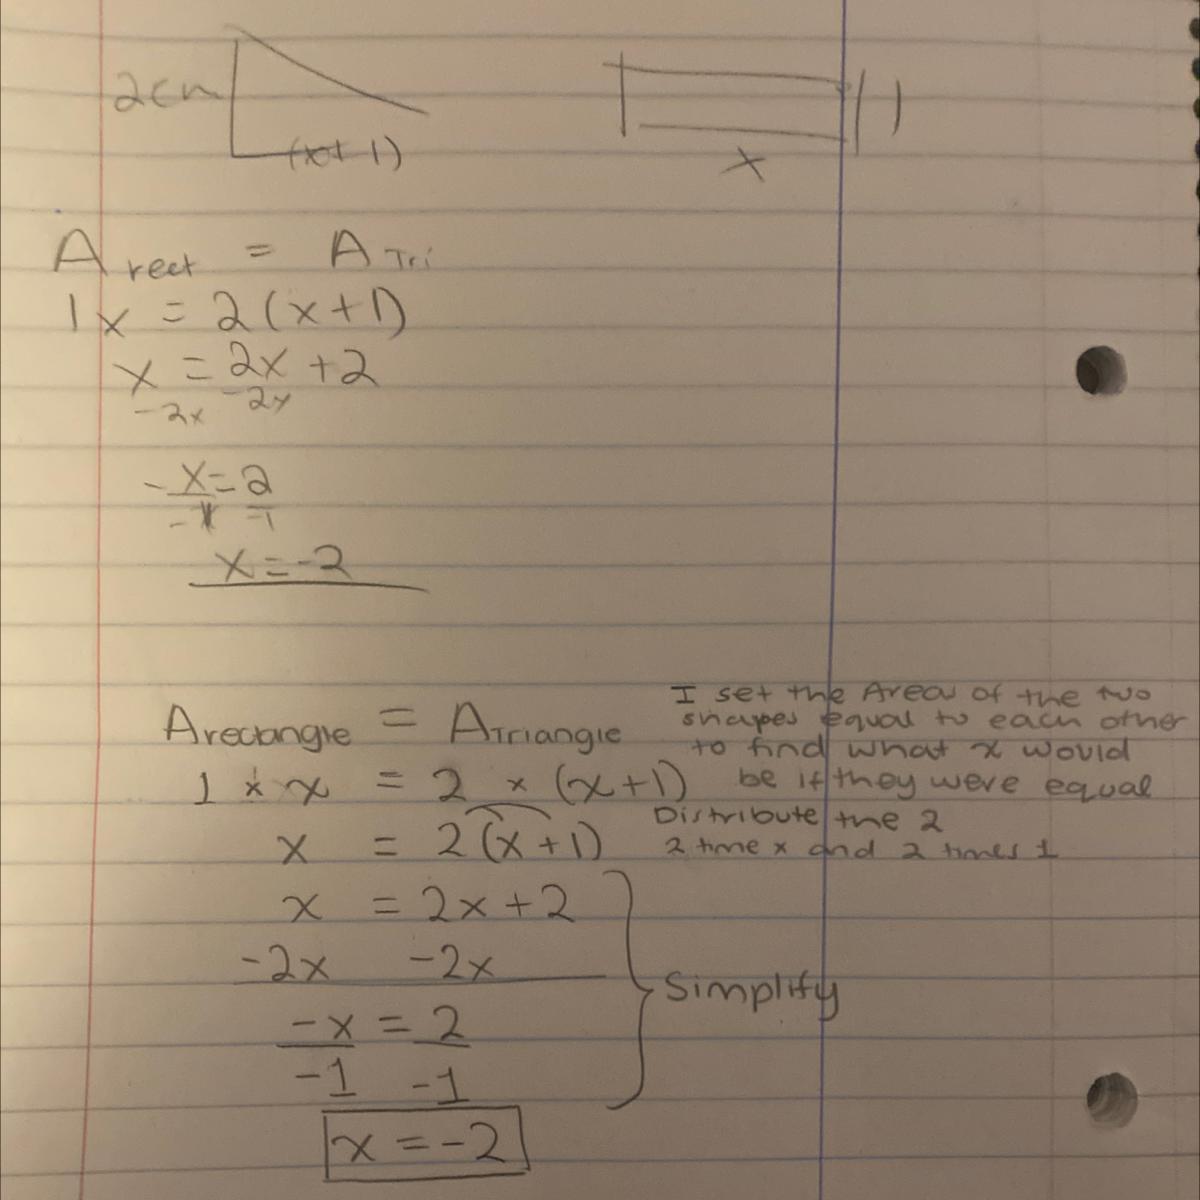 2cm
(x+1)
1
x
A rect = A Tri
1x = 2(x+1)
x = 2x +2
-2x -2x
-x=2
-1 -1
x=-2
Arectangle = ATriangle
I set the Area of the two
shapes equal to each other
to find what x would
be if they were equal
1 * x = 2 × (x+1)
Distribute the 2
x = 2(x+1)
2 time x and 2 times 1
x = 2x+2
-2x -2x
Simplify
-x = 2
-1 -1
x = -2